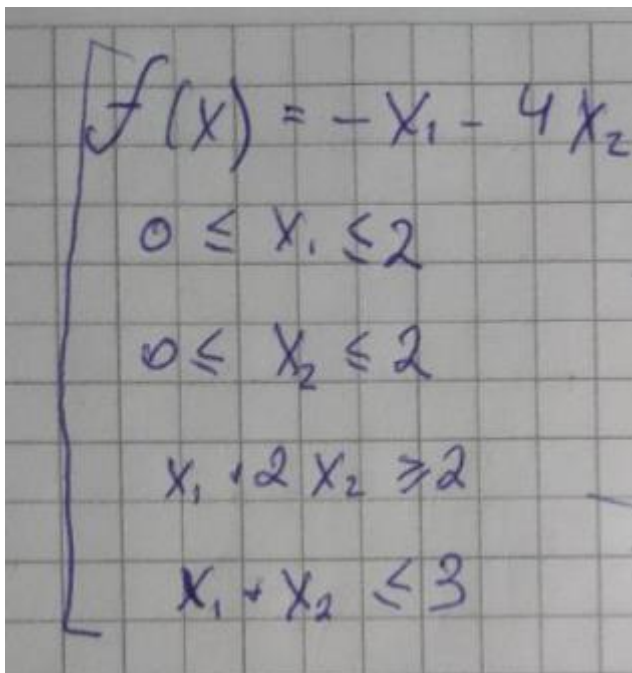 f(x) = -x₁ - 4x₂
0 ≤ x₁ ≤ 2
0 ≤ x₂ ≤ 2
x₁ + 2x₂ ≥ 2
x₁ + x₂ ≤ 3